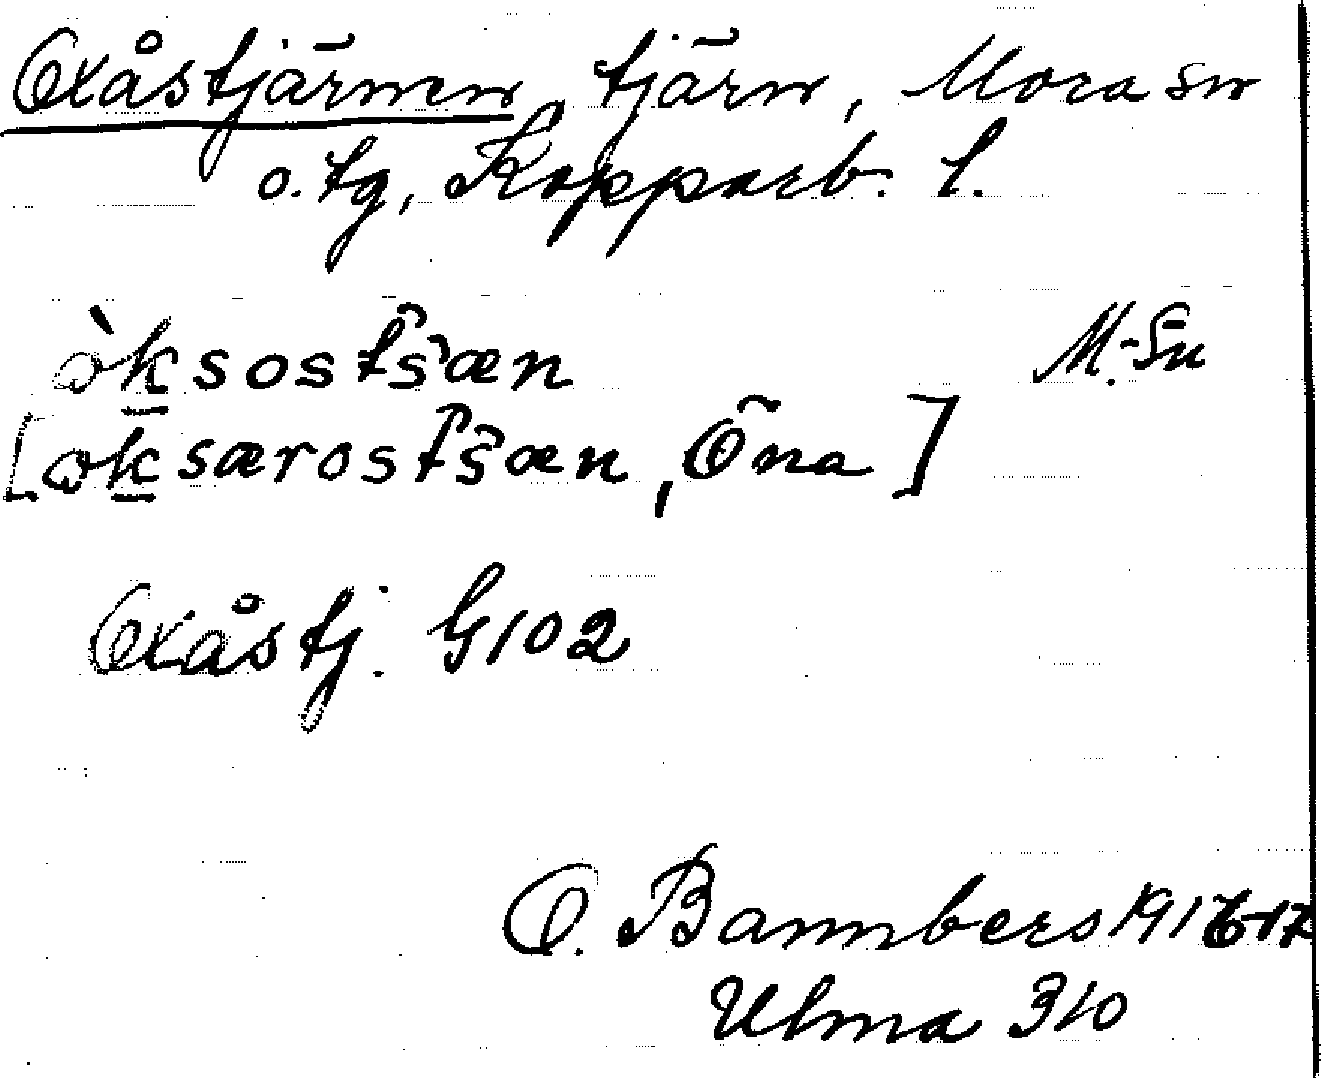 Oxåstjärnen, tjärn, Mora sn
o. tg, Kopparb. l.
òksostšæn M.-Sn
[oksærostšæn, Öna]
Oxåstj. G102
O. Bannbers 1916-17
Ulma 310